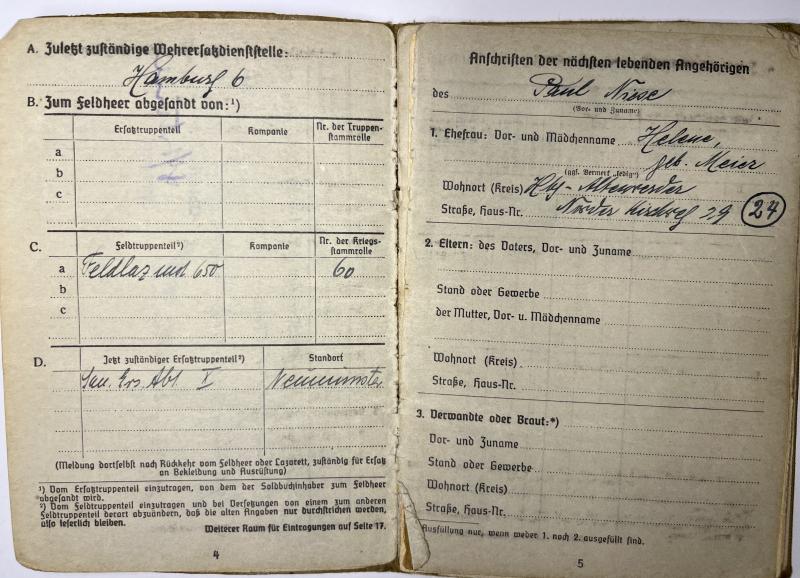 A. Zuletzt zuständige Wehrersatzdienststelle:
Hamburg 6
B. Zum Feldheer abgesandt von:¹)
Ersatztruppenteil
Kompanie
Nr. der Truppen-
stammrolle
a
b
c
C.
Feldtruppenteil²)
Kompanie
Nr. der Kriegs-
stammrolle
a Feldlaz 650 60
b
c
D.
Jetzt zuständiger Ersatztruppenteil²)
Standort
San. Ers. Abt. X Neumünster
(Meldung dortselbst nach Rückkehr vom Feldheer oder Lazarett, zuständig für Ersatz
an Bekleidung und Ausrüstung)
¹) Vom Ersatztruppenteil einzutragen, von dem der Soldbuchinhaber zum Feldheer
abgesandt wird.
²) Vom Feldtruppenteil einzutragen und bei Versetzungen von einem zum anderen
Feldtruppenteil derart abzuändern, daß die alten Angaben nur durchstrichen werden,
also leserlich bleiben.
Weiterer Raum für Eintragungen auf Seite 17.
4
Anschriften der nächsten lebenden Angehörigen
des Paul Niese
(Vor- und Zuname)
1. Ehefrau: Vor- und Mädchenname Helene,
geb. Meier
(ggf. Vermerk „ledig")
Wohnort (Kreis) Hbg-Altenwerder
Straße, Haus-Nr. Norder Kirchweg 29 24
2. Eltern: des Vaters, Vor- und Zuname
Stand oder Gewerbe
der Mutter, Vor- u. Mädchenname
Wohnort (Kreis)
Straße, Haus-Nr.
3. Verwandte oder Braut:*)
Vor- und Zuname
Stand oder Gewerbe
Wohnort (Kreis)
Straße, Haus-Nr.
Ausfüllung nur, wenn weder 1. noch 2. ausgefüllt sind.
5